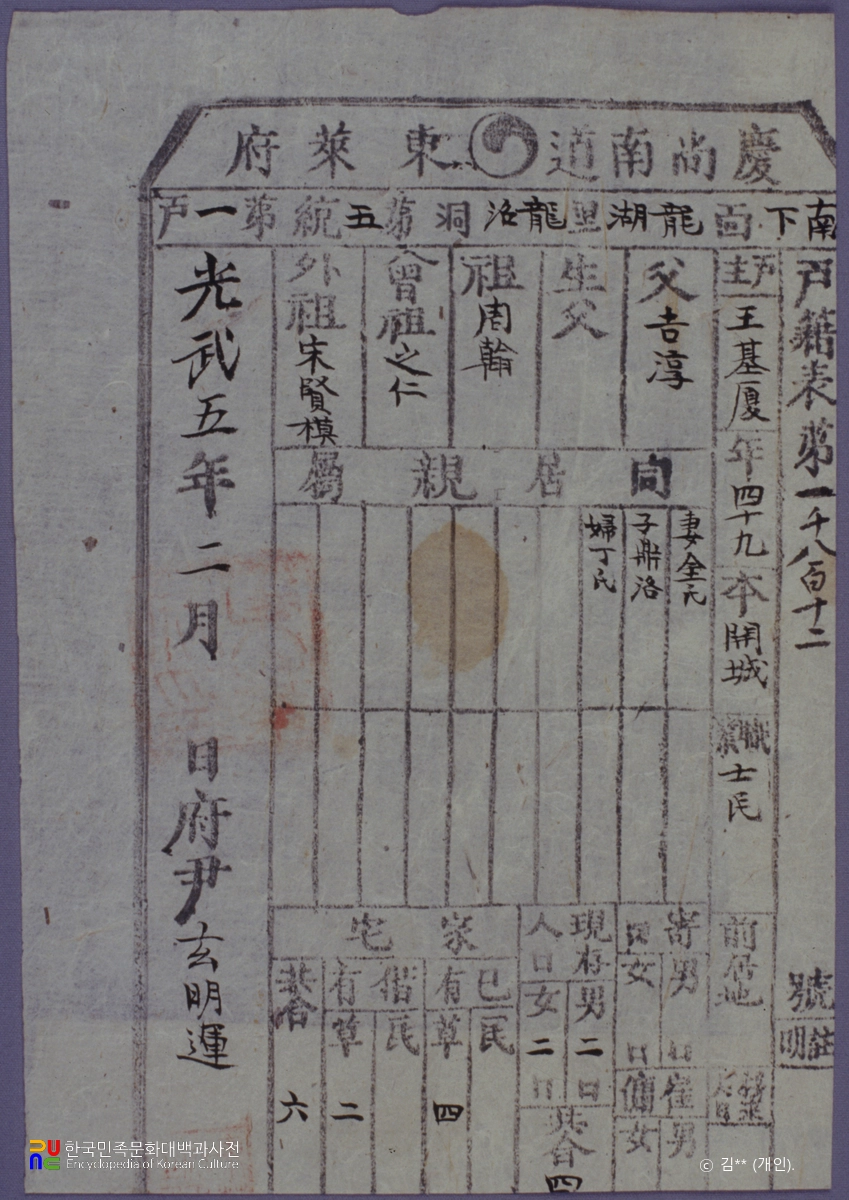 慶尙南道 東萊府
南下面龍湖里龍洛洞第五統第一戶
戶籍表第一千八百十二
號
註明
戶主
王基厦
年四十九
本開城
職業
士民
前居地
父
吉淳
生父
祖
周翰
曾祖
之仁
外祖
宋賢模
同居親屬
妻金氏
子鼎洛
婦丁氏
寄口
男 口
女 口
雇男
傭女
現存人口
男二口
女二口
共合四
家宅
已有
瓦
草四
借有
瓦
草二
共合六
光武五年二月 日府尹玄明運
한국민족문화대백과사전
Encyclopedia of Korean Culture
© 김** (개인).